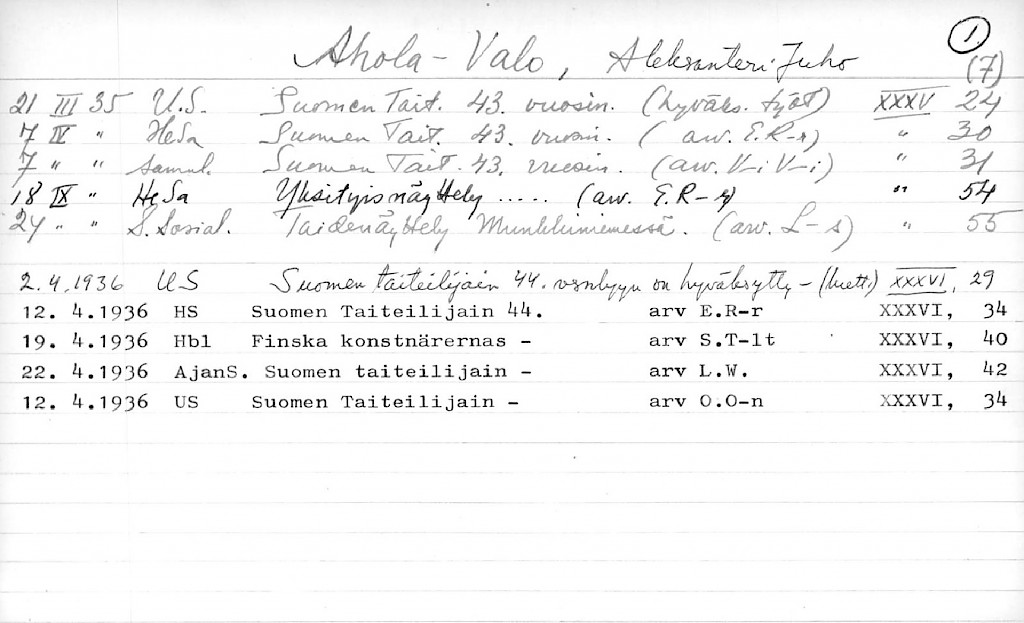 1.
Ahola-Valo, Aleksanteri Juho (7)
21 III 35 U.S. Suomen Tait. 43. vuosin. (hyväks. työt) XXXV 24
7 IV " HeSa Suomen Tait. 43. vuosin. (arv. E.R-r) " 30
7 " " Samml. Suomen Tait. 43. vuosin. (arv. V-i V-i) " 31
18 IX " HeSa Yksityisnäyttely ..... (arv. E.R-r) " 54
24 " " S. Sosial. Taidenäyttely Munkkiniemessä. (arv. L-s) " 55
2.4.1936 US Suomen taiteilijain 44. on hyväksytty - (luett.) XXXVI, 29
12. 4.1936 HS Suomen Taiteilijain 44. arv E.R-r XXXVI, 34
19. 4.1936 Hbl Finska konstnärernas - arv S.T-lt XXXVI, 40
22. 4.1936 AjanS. Suomen taiteilijain - arv L.W. XXXVI, 42
12. 4.1936 US Suomen Taiteilijain - arv O.O-n XXXVI, 34